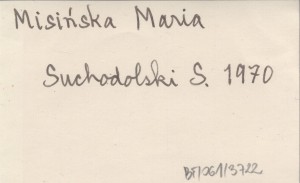 Misińska Maria
Suchodolski S. 1970
BF/061/3722